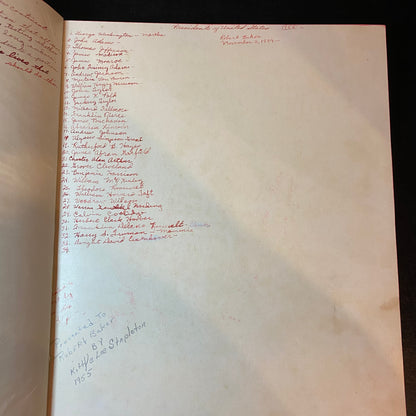 Presidents of United States
Robert Baker
November 2, 1954
1. George Washington - Martha
2. John Adams
3. Thomas Jefferson
4. James Madison
5. James Monroe
6. John Quincy Adams
7. Andrew Jackson
8. Martin Van Buren
9. William Henry Harrison
10. John Tyler
11. James K. Polk
12. Zachary Taylor
13. Millard Fillmore
14. Franklin Pierce
15. James Buchanan
16. Abraham Lincoln
17. Andrew Johnson
18. Ulysses Simpson Grant
19. Rutherford B Hayes
20. James Abram Garfield
21. Chester Alan Arthur
22. Grover Cleveland
23. Benjamin Harrison
24. William McKinley
25. Theodore Roosevelt
26. William Howard Taft
27. Woodrow Wilson
28. Warren Harding
29. Calvin Coolidge
30. Herbert Clark Hoover
31. Franklin Delano Roosevelt
32. Harry S. Truman - Mamie
33. Dwight David Eisenhower
34.
Presented To
Robert Baker
BY
Stapleton
1955